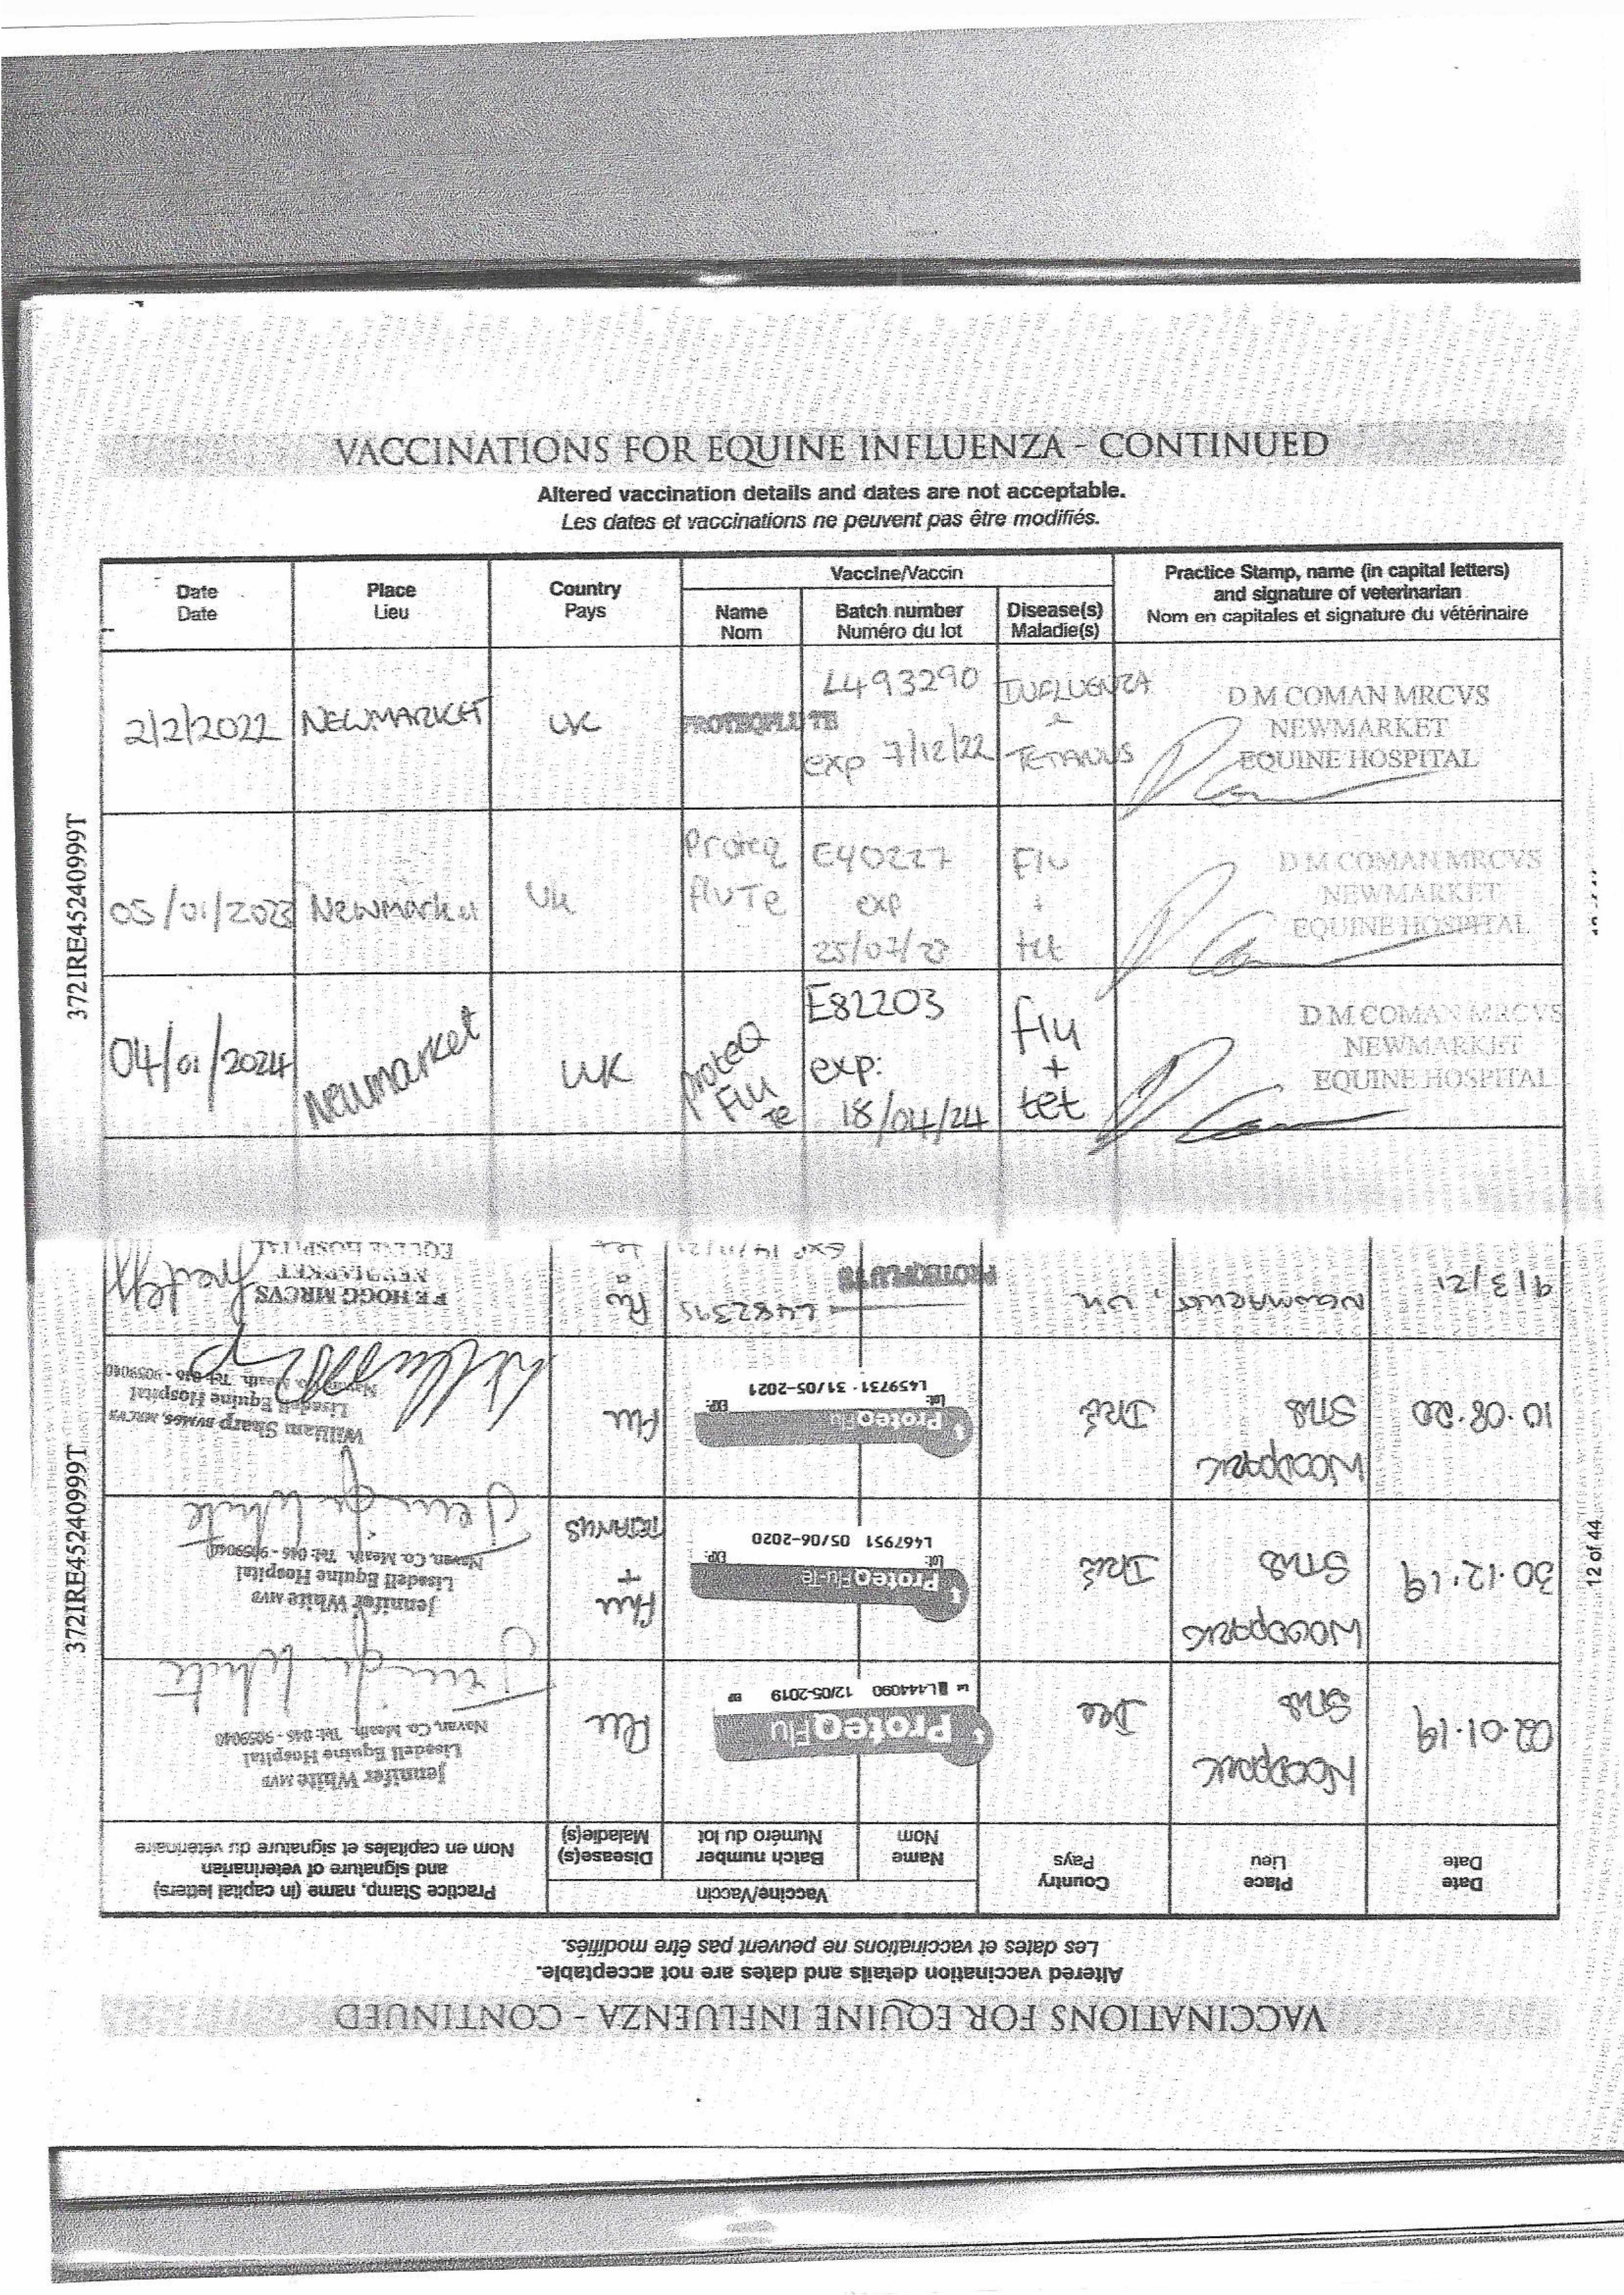 VACCINATIONS FOR EQUINE INFLUENZA - CONTINUED
Altered vaccination details and dates are not acceptable.
Les dates et vaccinations ne peuvent pas être modifiés.
Date
Date
Place
Lieu
Country
Pays
Vaccine/Vaccin
Name
Nom
Batch number
Numéro du lot
Disease(s)
Maladie(s)
Practice Stamp, name (in capital letters)
and signature of veterinarian
Nom en capitales et signature du vétérinaire
2/2/2022
NEWMARKET
UK
PROTEQFLU TE
L493290
exp 7/12/22
INFLUENZA
&
TETANUS
D M COMAN MRCVS
NEWMARKET
EQUINE HOSPITAL
05/01/2023
Newmarket
UK
Proteq
fluTe
E40227
exp
25/07/23
Flu
+
tet
D M COMAN MRCVS
NEWMARKET
EQUINE HOSPITAL
04/01/2024
Newmarket
UK
proteQ
Flu
Te
E82203
exp:
18/04/24
flu
+
tet
D M COMAN MRCVS
NEWMARKET
EQUINE HOSPITAL
372IRE45240999T
VACCINATIONS FOR EQUINE INFLUENZA - CONTINUED
Altered vaccination details and dates are not acceptable.
Les dates et vaccinations ne peuvent pas être modifiés.
Date
Date
Place
Lieu
Country
Pays
Vaccine/Vaccin
Name
Nom
Batch number
Numéro du lot
Disease(s)
Maladie(s)
Practice Stamp, name (in capital letters)
and signature of veterinarian
Nom en capitales et signature du vétérinaire
02.01.19
Woodpark
Stud
Ire
ProteqFlu
L444090 12/05-2019
Flu
Jennifer White MVB
Lisadell Equine Hospital
Navan, Co. Meath. Tel: 046 - 9059040
Jennifer White
30.12.19
Woodpark
Stud
Ire
ProteqFlu-Te
Lot: EXP:
L467951 05/06-2020
Flu
+
TETANUS
Jennifer White MVB
Lisadell Equine Hospital
Navan, Co. Meath. Tel: 046 - 9059040
Jennifer White
10.08.20
Woodpark
Stud
Ire
ProteqFlu
Lot: EXP:
L459731 - 31/05-2021
Flu
William Sharp BVM&S, MRCVS
Lisadell Equine Hospital
Navan, Co. Meath. Tel: 046 - 9059040
9/3/21
Newmarket, UK
PROTEQFLU TE
L482395
EXP 14/11/21
Flu
&
Tet
F E HOGG MRCVS
NEWMARKET
EQUINE HOSPITAL
372IRE45240999T
12 of 44